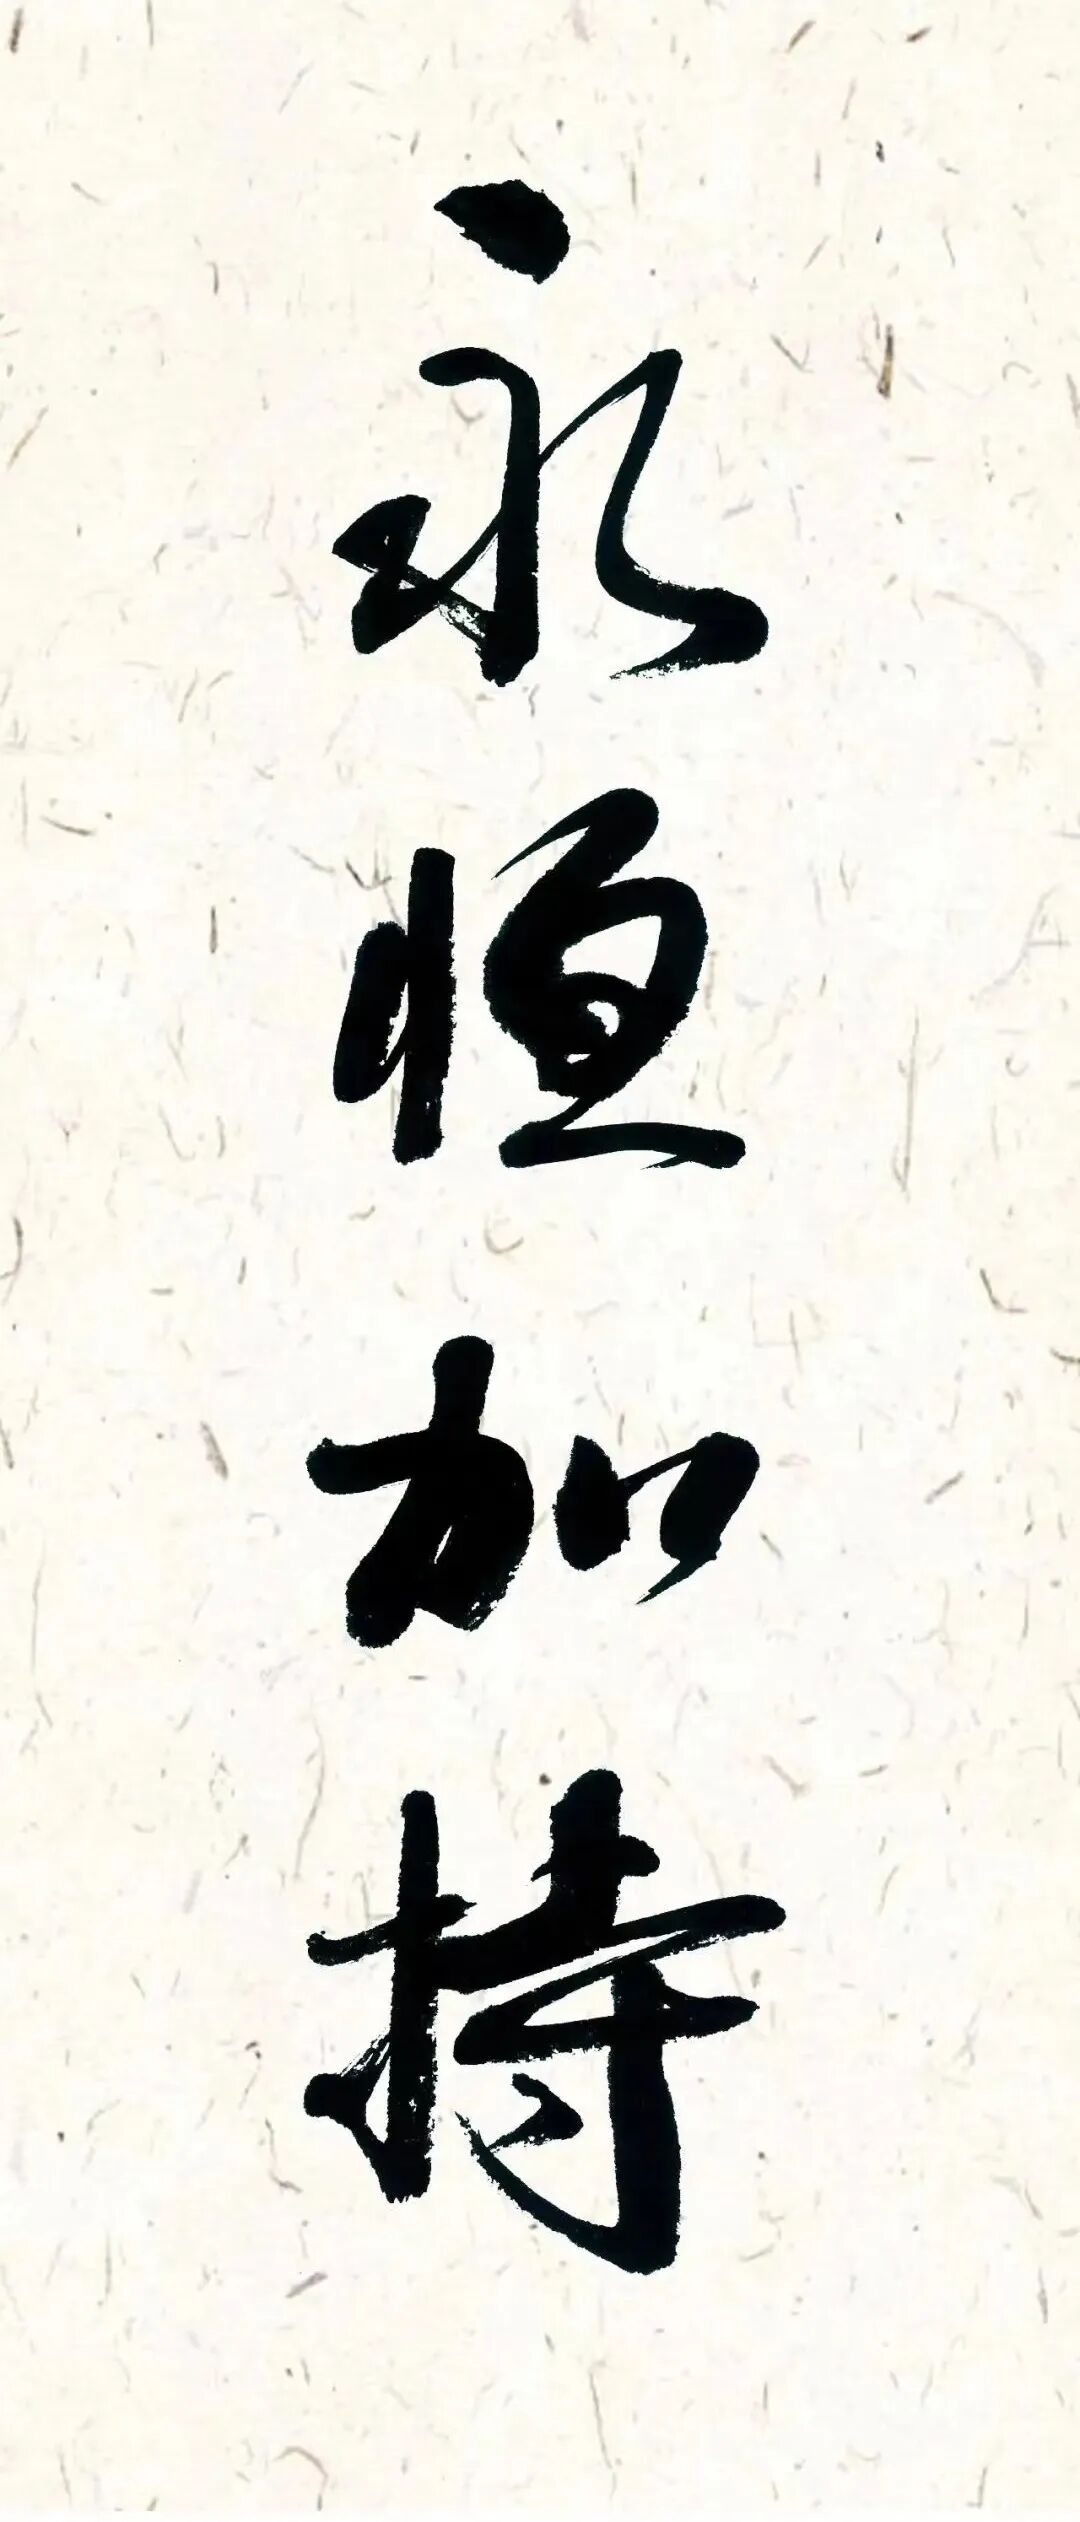 永恒加持